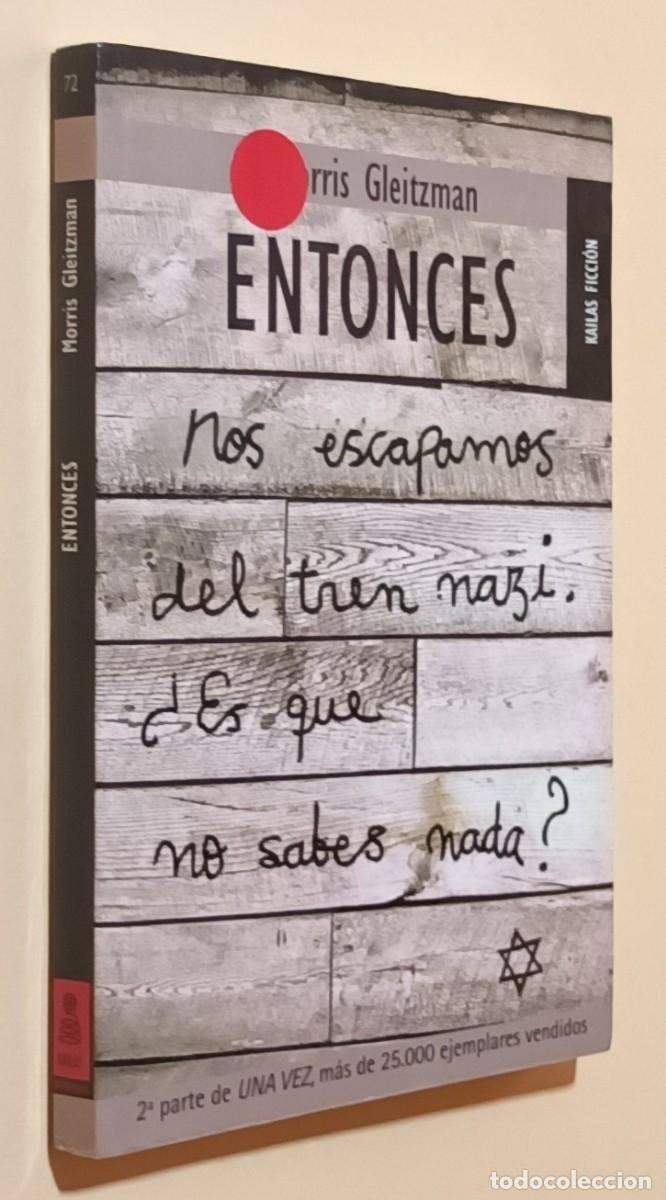 72
Morris Gleitzman
ENTONCES
rris Gleitzman
ENTONCES
KAILAS FICCIÓN
Nos escapamos
del tren nazi.
¿Es que
no sabes nada?
2ª parte de UNA VEZ, más de 25.000 ejemplares vendidos
todocoleccion